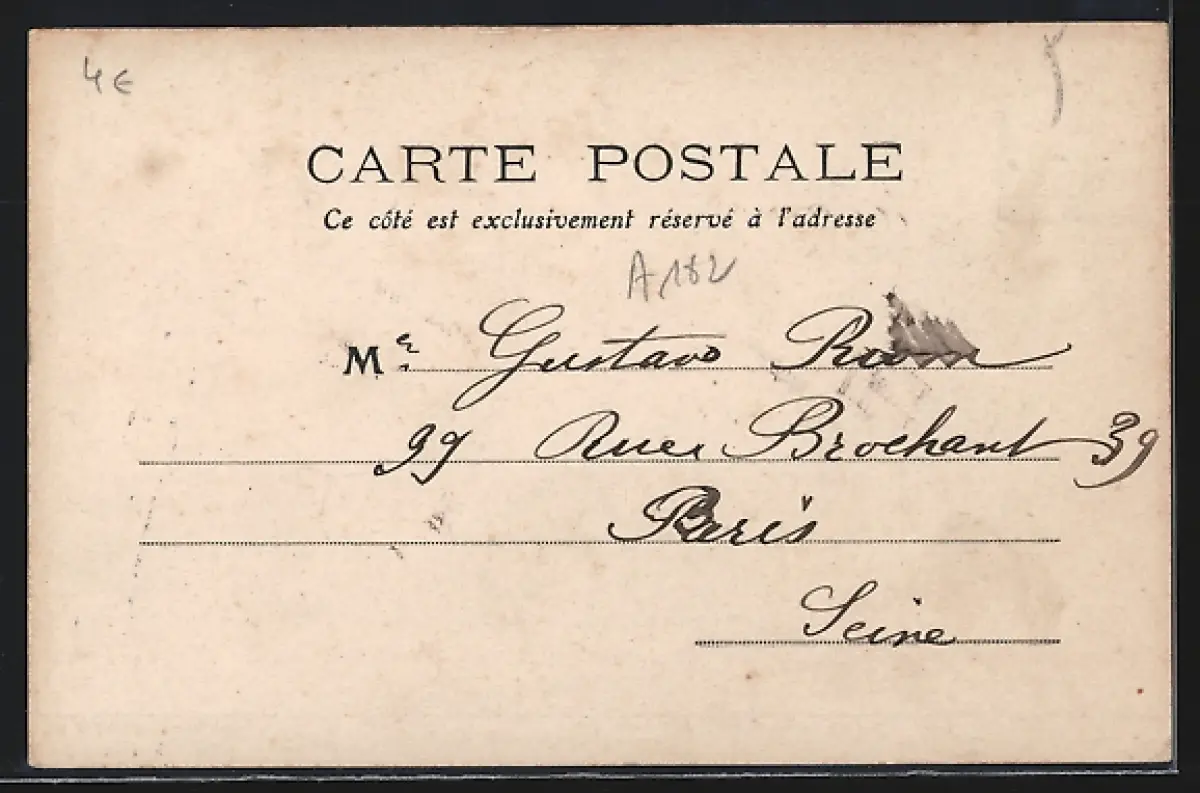 4 €
CARTE POSTALE
Ce côté est exclusivement réservé à l'adresse
A182
Mr Gustave
39 Rue Brochant 39
Paris
Seine